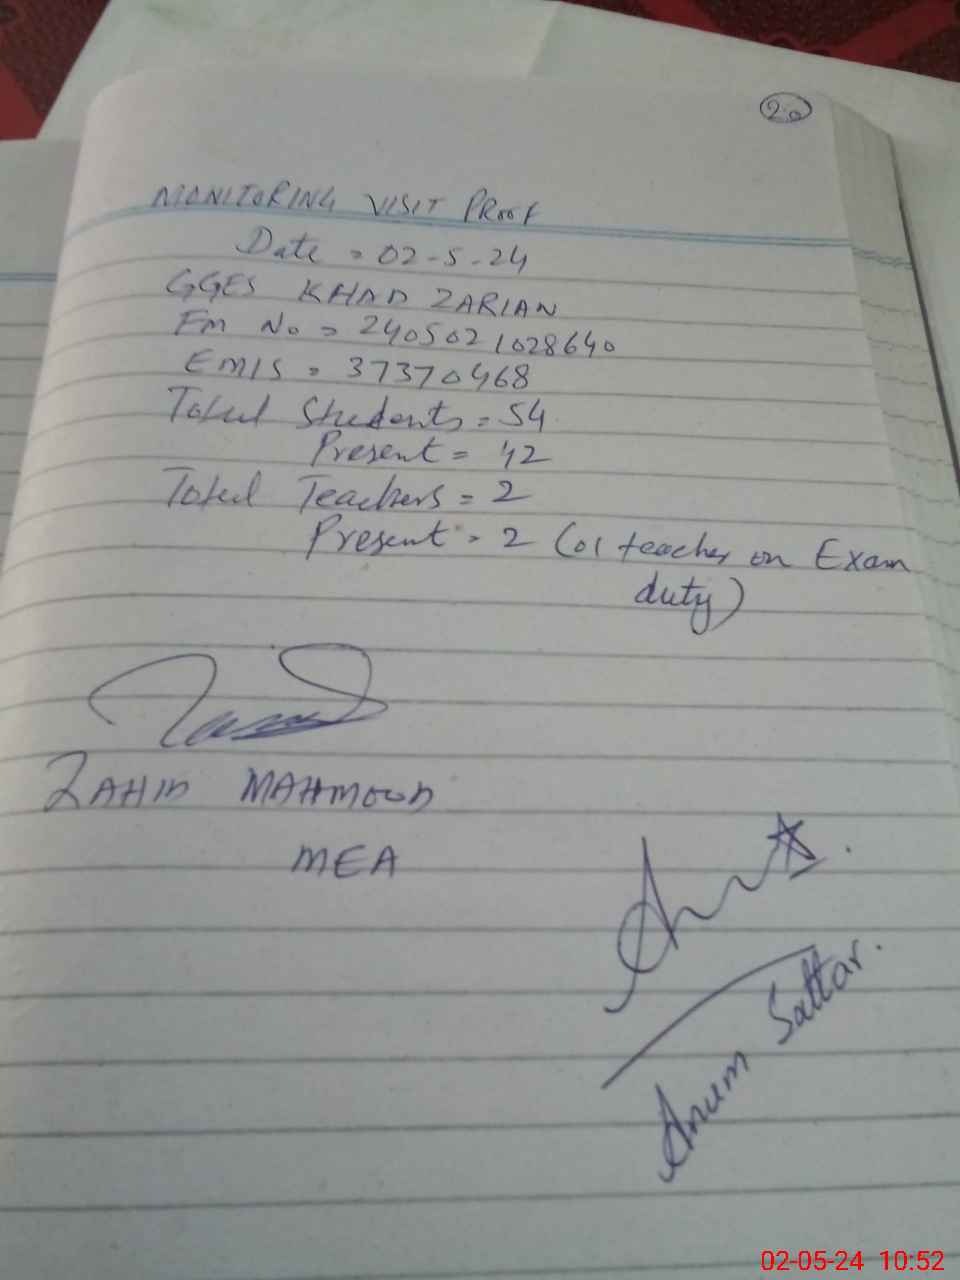 20
MONITORING VISIT PROOF
Date = 02-5-24
GGES KHAD ZARIAN
Fm No = 2405021028640
EMIS = 37370468
Total Students = 54
Present = 42
Total Teachers = 2
Present = 2 (01 teacher on Exam
duty)
ZAHID MAHMOOD
MEA
Anum Sattar.
02-05-24 10:52